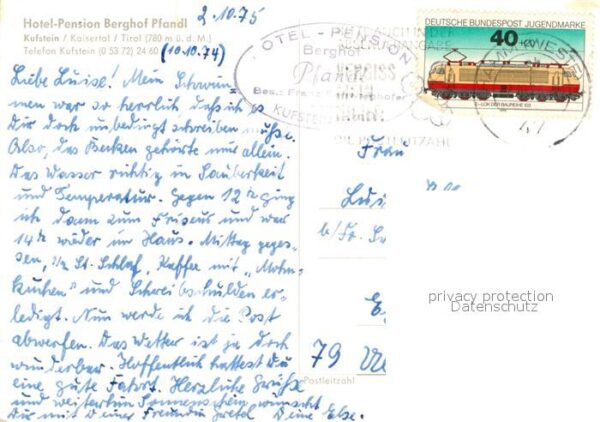 2.10.75
Hotel-Pension Berghof Pfandl
Kufstein / Kaisertal / Tirol (780 m ü. d. M.)
Telefon Kufstein (0 53 72) 24 60
(10.10.74)
HOTEL - PENSION
Berghof
Pfandl
Bes.: Franz
KUFSTEIN
AUCH IN DER
VERGISS
DEUTSCHE BUNDESPOST JUGENDMARKE
40
+20
E-LOK DER BAUREIHE 103
Liebe Luise! Mein Schwim-
men war so herrlich, daß ich es
Dir doch unbedingt schreiben müßte.
Also, das Becken gehörte nur allein.
Das Wasser richtig in Sauberkeit
und Temperatur. Gegen 12 ging
ich dann zum Friseur und war
14 wieder im Haus. Mittag geges-
sen, 1/2 St. Schlaf, Kaffee mit "Mohn-
kuchen" und Schreibschulden er-
ledigt. Nun werde ich die Post
abwerfen. Das Wetter ist ja doch
wunderbar. Hoffentlich hattest Du
eine gute Fahrt. Herzliche Grüße
und weiterhin Sonnenschein wünscht
Dir mit Deiner Freundin Gretel Deine Else.
Frau
Lui
b/Fr.
79
Postleitzahl
privacy protection
Datenschutz